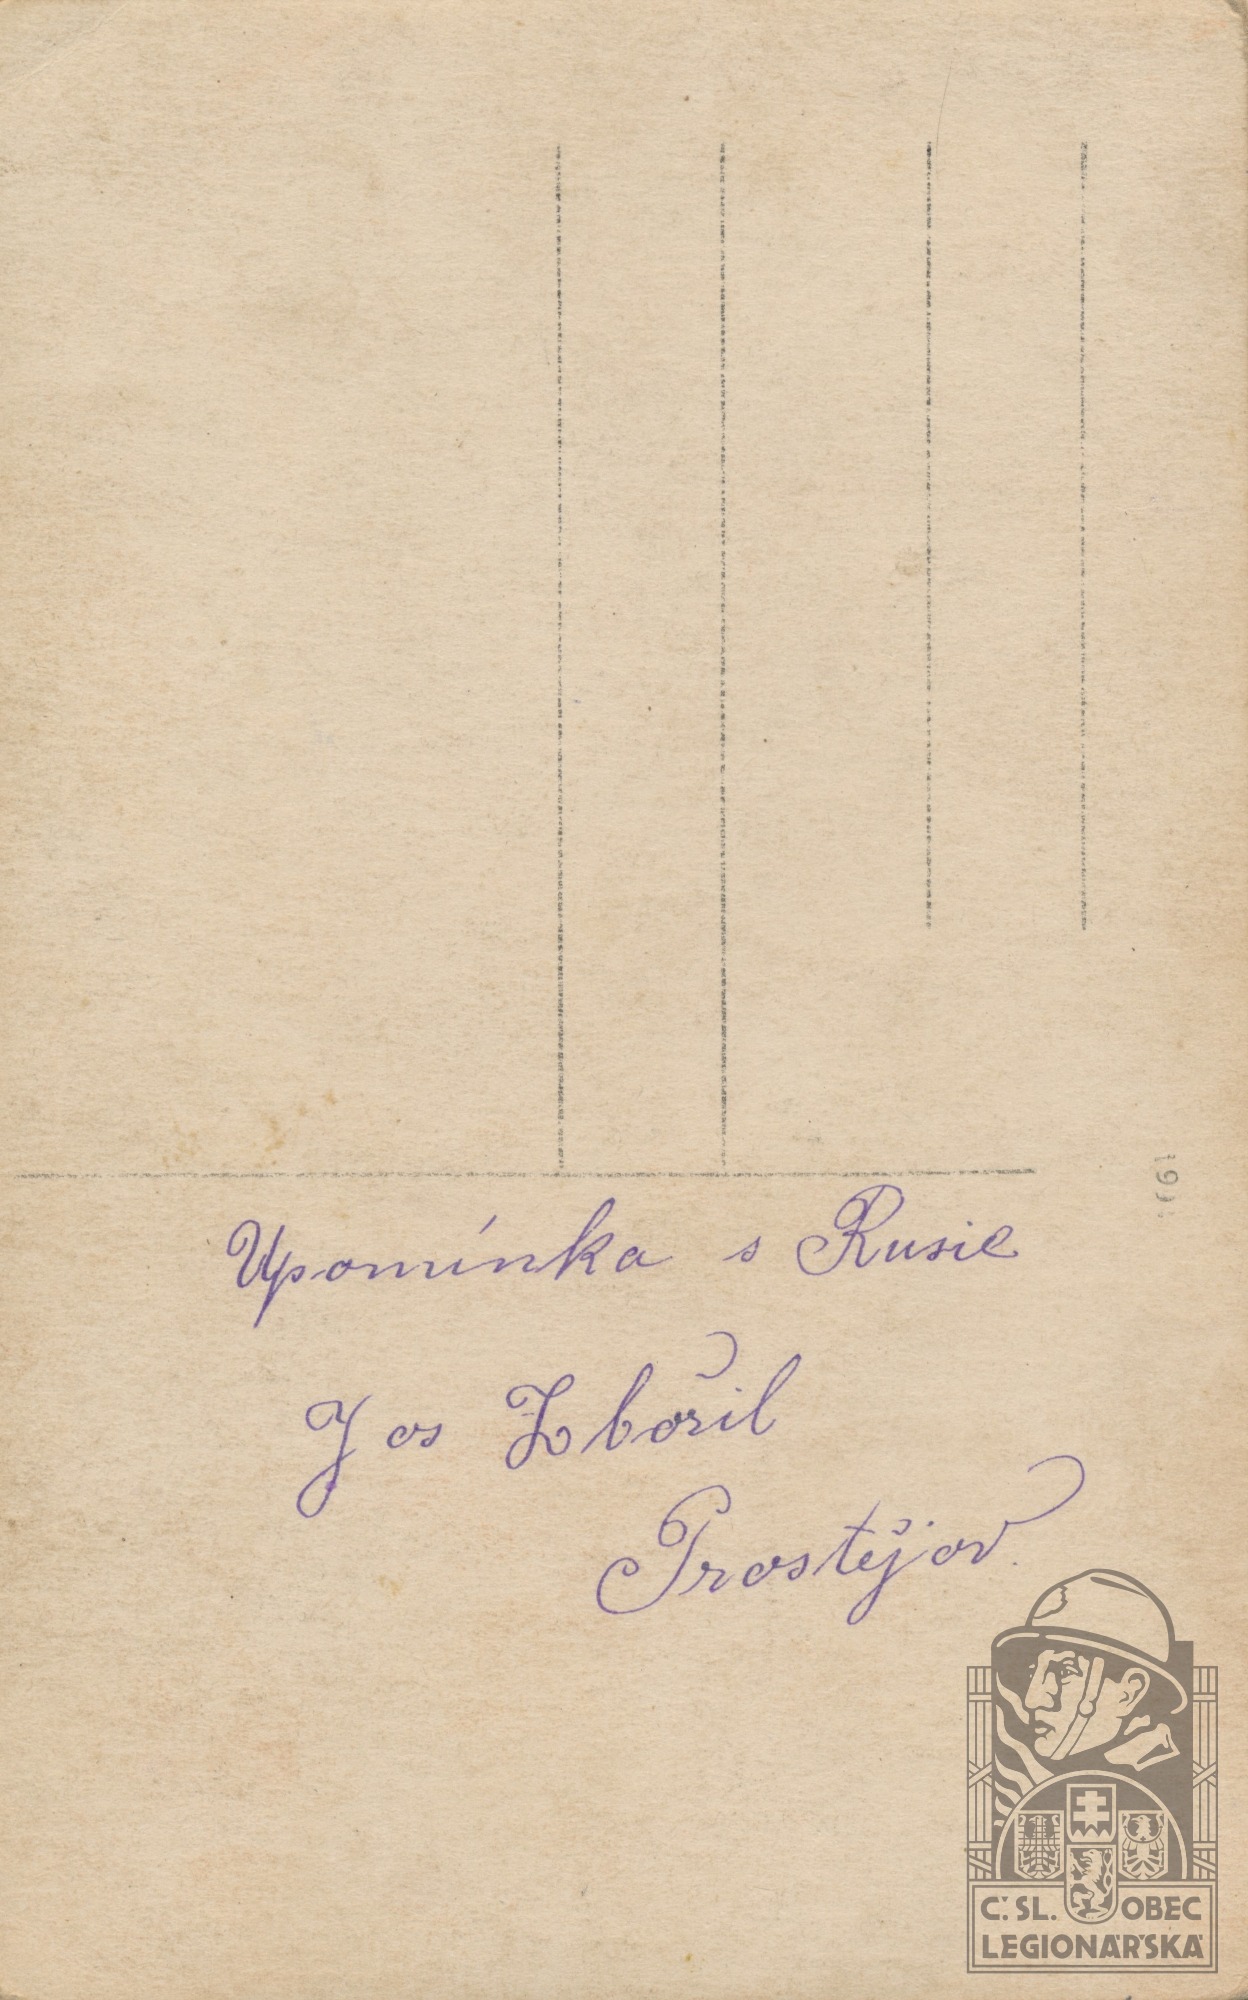 Upomínka s Rusie
Jos Zbořil
Prostějov.
Č. SL. OBEC
LEGIONÁŘSKÁ